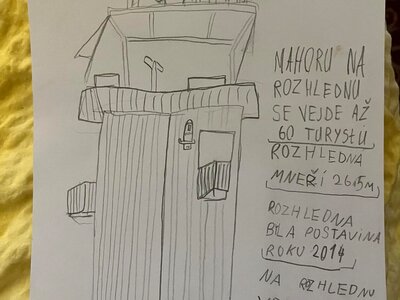 NAHORU NA
ROZHLEDNU
SE VEJDE AŽ
60 TURYSTŮ
ROZHLEDNA
MNEŘÍ 26.5M
ROZHLEDNA
BLA POSTAVINA
ROKU 2014
NA ROZHLEDNU